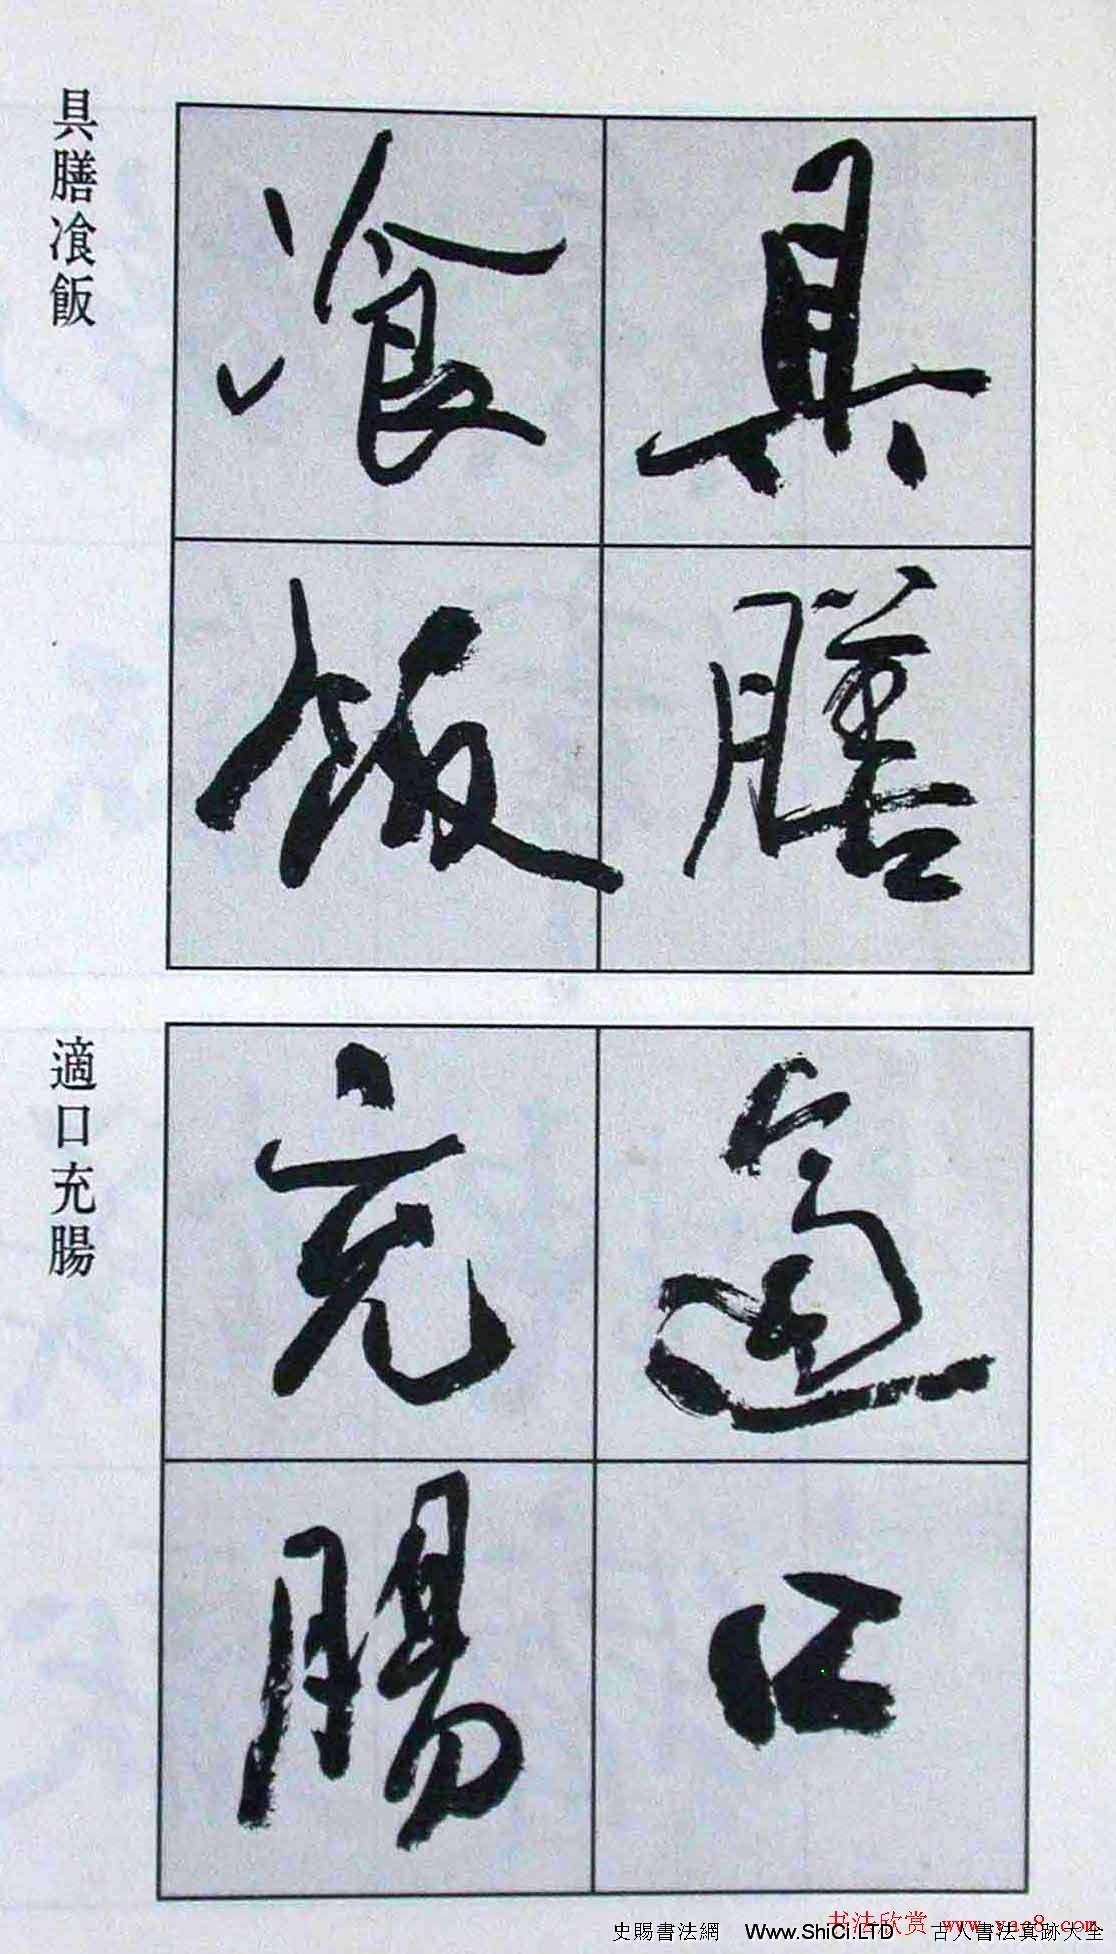 具膳
飡飯
具膳飡飯
適口
充腸
適口充腸
书法欣赏 www.ya-8.com
史賜書法網 Www.ShiCi.LTD 古人書法真跡大全